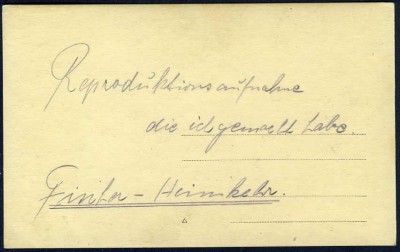 Reproduktionsaufnahme
die ich gemacht habe.
Fischer - Heimkehr.